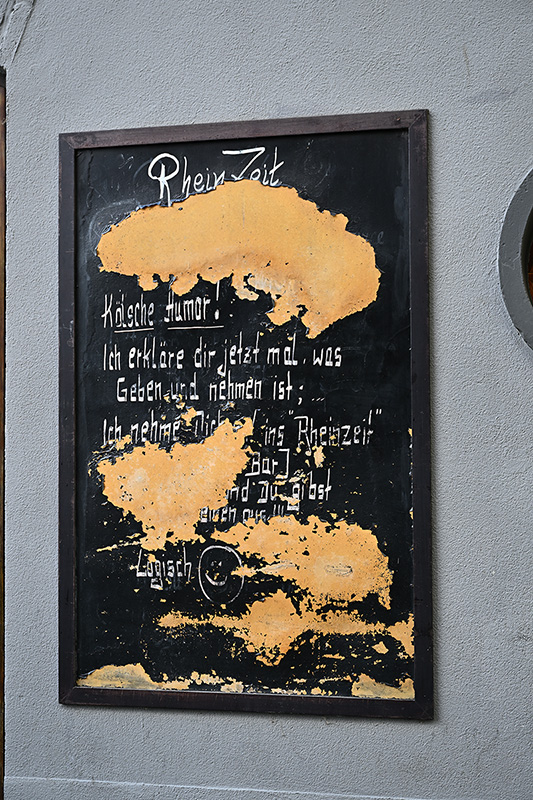 RheinZeit
Kölsche Humor!
Ich erkläre dir jetzt mal, was
Geben und nehmen ist; ...
Ich nehme Dich ins "Rheinzeit"
Bar]
und Du gibst
einen aus !!!
Logisch